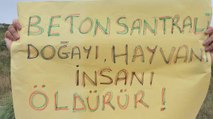 BETON SANTRALİ
DOĞAYI, HAYVANI
İNSANI
ÖLDÜRÜR!